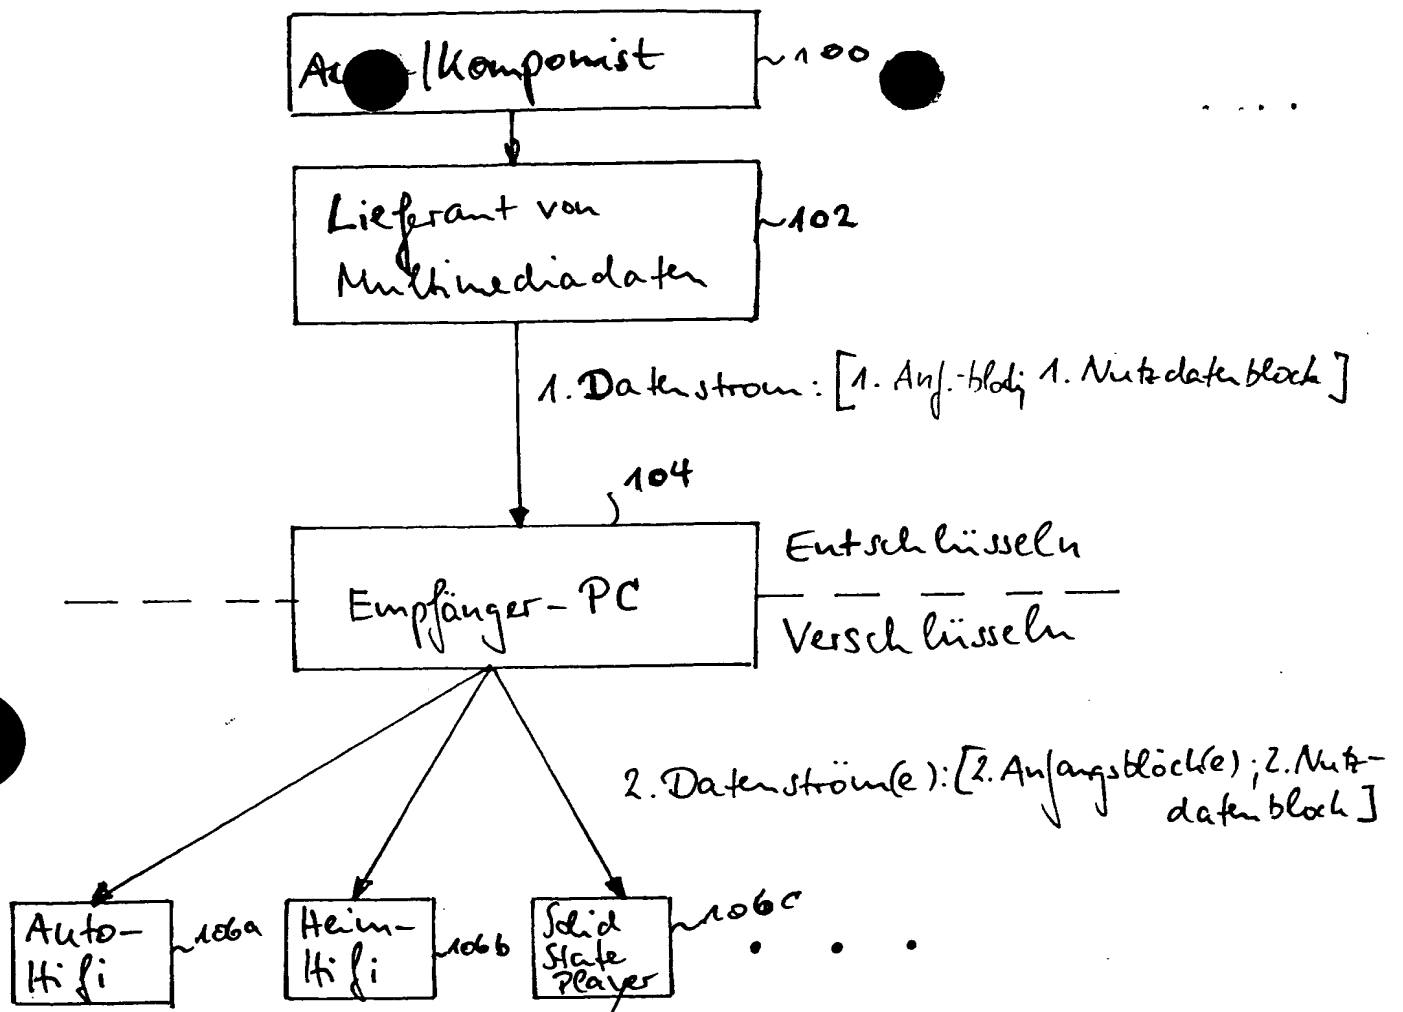 /Komponist
100
Lieferant von
Multimediadaten
102
1. Datenstrom: [1. Anf.-block; 1. Nutzdatenblock]
104
Empfänger-PC
Entschlüsseln
Verschlüsseln
2. Datenström(e): [2. Anfangsblöck(e); 2. Nutz-
datenblock]
Auto-
Hifi
106a
Heim-
Hifi
106b
Solid
State
Player
106c